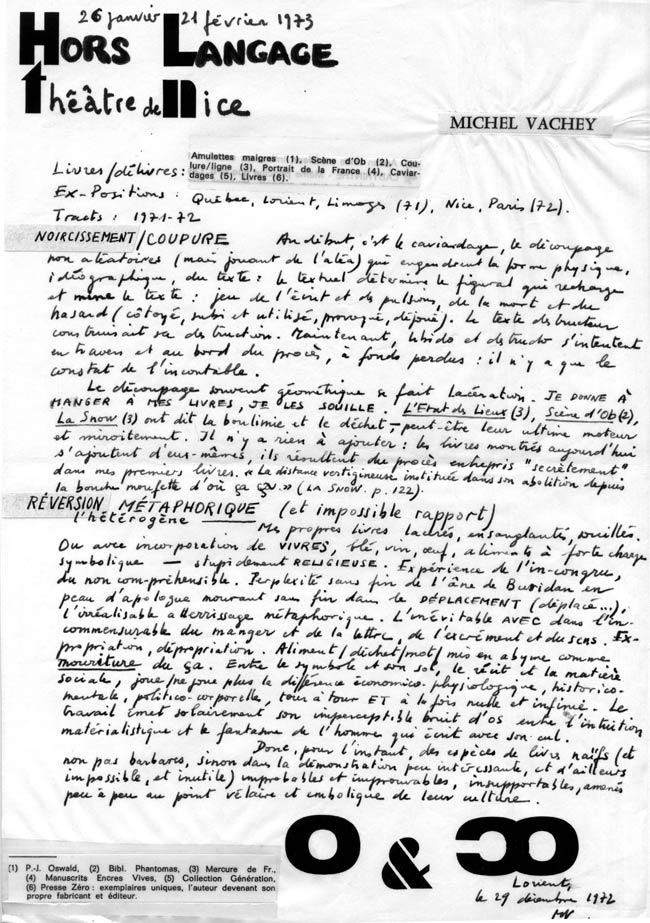 26 janvier 21 février 1973
HORS LANGAGE
théâtre de nice
MICHEL VACHEY
Livres/délivres : Amulettes maigres (1), Scène d'Ob (2), Cou-
lure/ligne (3), Portrait de la France (4), Caviar-
dages (5), Livres (6).
Ex-Positions : Québec, Lorient, Limoges (71), Nice, Paris (72).
Tracts : 1971-72
NOIRCISSEMENT/COUPURE Au début, c'est le caviardage, le découpage
non aléatoires (mais jouant de l'aléa) qui engendrent la forme physique,
idéographique, du texte : le textuel détermine le figural qui recharge
et mine le texte : jeu de l'écrit et des pulsions, de la mort et du
hasard (côtoyé, subi et utilisé, provoqué, déjoué). Le texte destructeur
construisait sa destruction. Maintenant, libido et destrudo s'intentent
en travers et au bord du procès, à fonds perdus : il n'y a que le
constat de l'incontable.
Le découpage souvent géométrique se fait lacération. JE DONNE À
MANGER À MES LIVRES, JE LES SOUILLE. L'Etat des Lieux (3), Scène d'Ob (2),
La Snow (3) ont dit la boulimie et le déchet – peut-être leur ultime moteur
et miroitement. Il n'y a rien à ajouter : les livres montrés aujourd'hui
s'ajoutent d'eux-mêmes, ils résultent du procès entrepris "secrètement"
dans mes premiers livres. « La distance vertigineuse instituée dans son abolition depuis
la bouche moufette d'où ça ». (LA SNOW. p. 122).
RÉVERSION MÉTAPHORIQUE (et impossible rapport)
l'hétérogène Mes propres livres lacérés, ensanglantés, souillés.
Ou avec incorporation de VIVRES, blé, vin, œuf, aliments à forte charge
symbolique — stupidement RELIGIEUSE. Expérience de l'in-congru,
du non com-préhensible. Perplexité sans fin de l'âne de Buridan en
peau d'apologue mourant sans fin dans le DÉPLACEMENT (déplacé...),
l'irréalisable atterrissage métaphorique. L'inévitable AVEC dans l'in-
commensurable du manger et de la lettre, de l'excrément et du sens. Ex-
propriation, dépropriation. Aliment/déchet/mot/ mis en abyme comme
mouriture du ça. Entre le symbole et son sol, le récit et la matière
sociale, joue/ne joue plus la différence économico-physiologique, historico-
mentale, politico-corporelle, tour à tour ET à la fois nulle et infinie. Le
travail émet solairement son imperceptible bruit d'os entre l'intuition
matérialistique et le fantasme de l'homme qui écrit avec son cul.
Donc, pour l'instant, des espèces de livres naïfs (et
non pas barbares, sinon dans la démonstration peu intéressante, et d'ailleurs
impossible, et inutile) improbables et improuvables, insupportables, amenés
peu à peu au point vélaire et embolique de leur culture.
(1) P.-J. Oswald, (2) Bibl. Phantomas, (3) Mercure de Fr.,
(4) Manuscrits Encres Vives, (5) Collection Génération,
(6) Presse Zéro : exemplaires uniques, l'auteur devenant son
propre fabricant et éditeur.
O &
Lorient,
le 29 décembre 1972